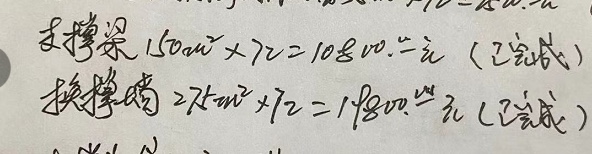 支撑梁 150m² × 72 = 10800.00元 (已完成)
换撑墙 275m² × 72 = 19800.00元 (已完成)